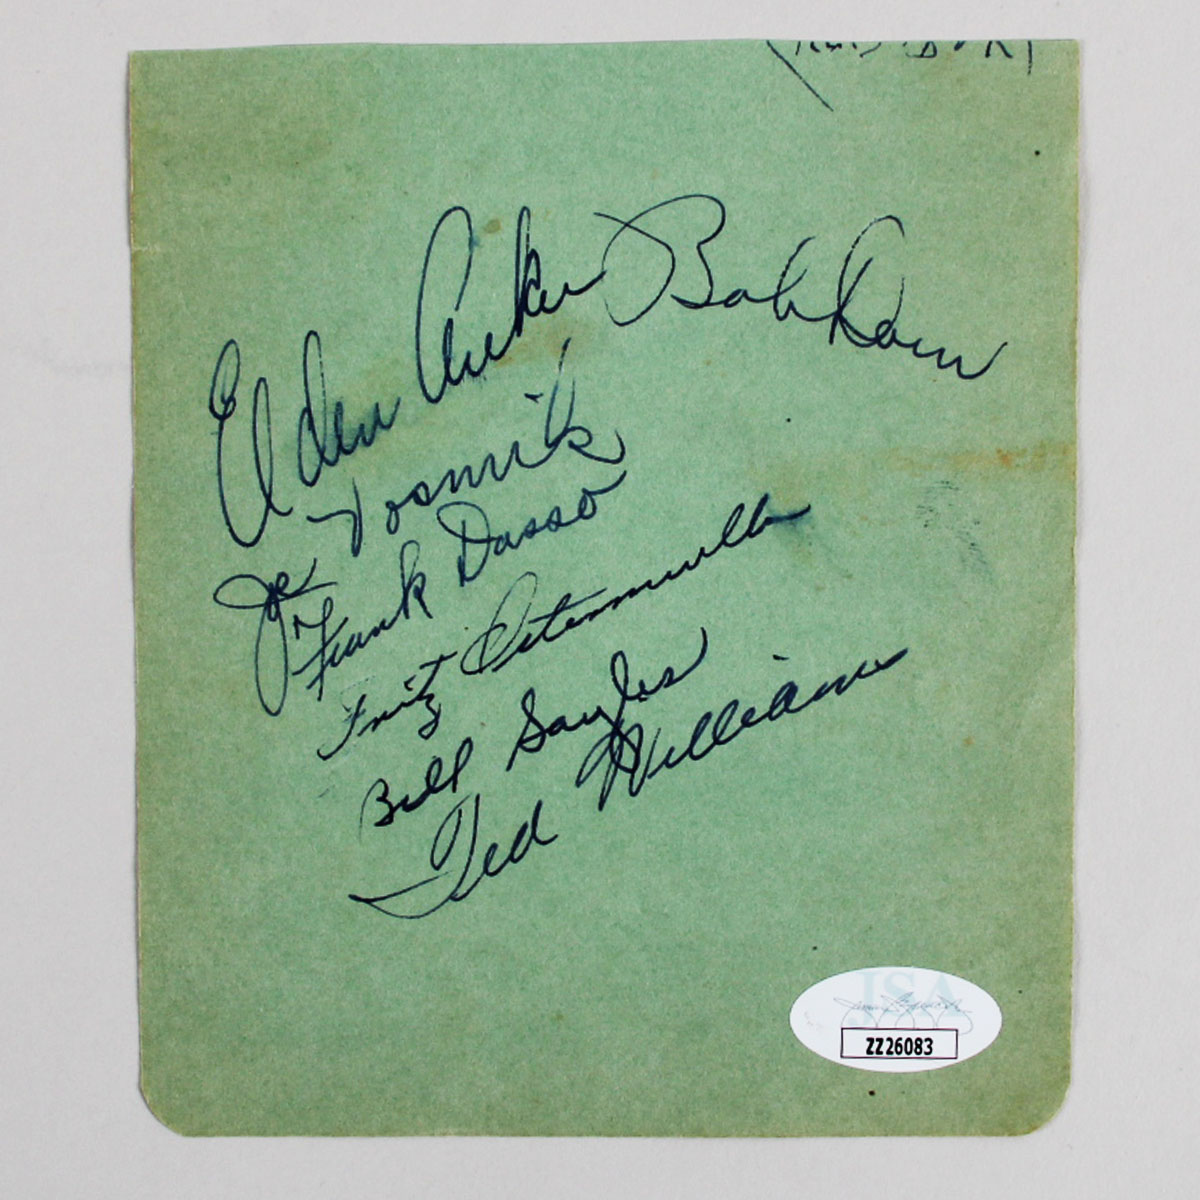 Elden Auker
Bob Daw
Joe Vosmik
Frank Dasso
Fritz Ostermueller
Bill Sayles
Ted Williams
JSA
ZZ26083